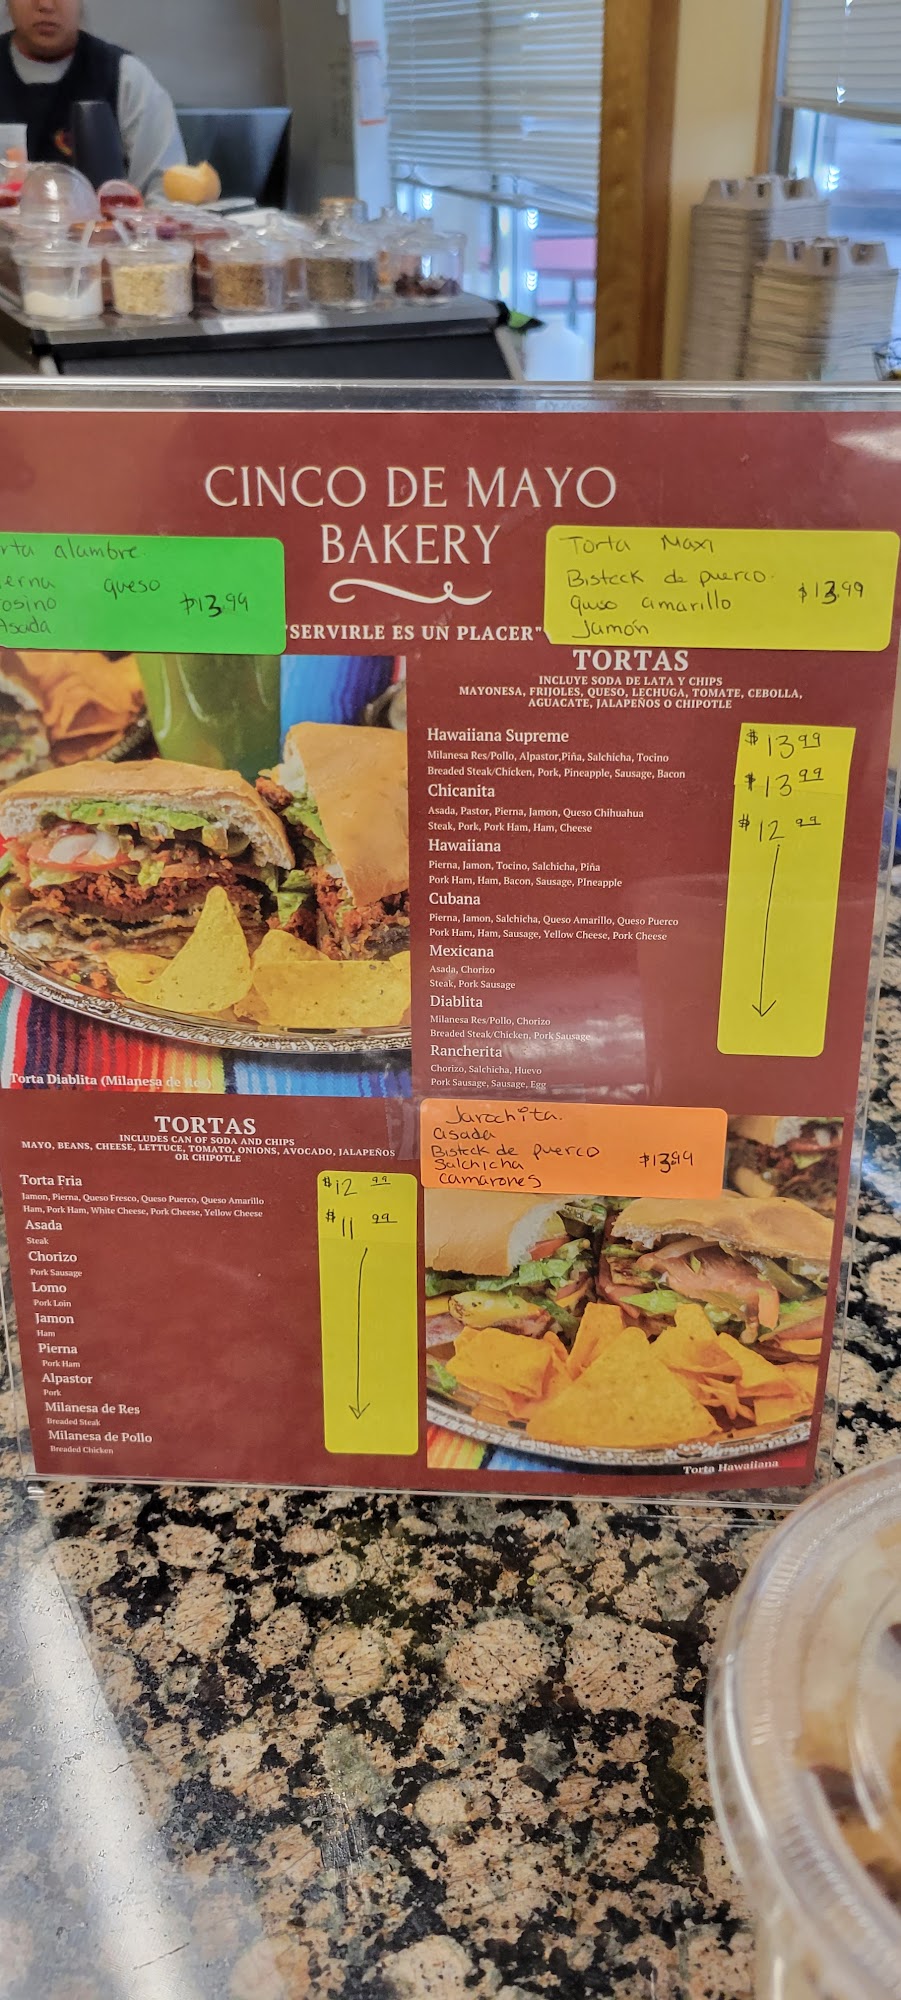 CINCO DE MAYO
BAKERY
"SERVIRLE ES UN PLACER"
alambre
queso
$13.99
Asada
Torta Maxi
Bisteck de puerco
queso amarillo
Jamón
$13.99
TORTAS
INCLUYE SODA DE LATA Y CHIPS
MAYONESA, FRIJOLES, QUESO, LECHUGA, TOMATE, CEBOLLA,
AGUACATE, JALAPEÑOS O CHIPOTLE
Hawaiiana Supreme
Milanesa Res/Pollo, Alpastor,Piña, Salchicha, Tocino
Breaded Steak/Chicken, Pork, Pineapple, Sausage, Bacon
Chicanita
Asada, Pastor, Pierna, Jamon, Queso Chihuahua
Steak, Pork, Pork Ham, Ham, Cheese
Hawaiiana
Pierna, Jamon, Tocino, Salchicha, Piña
Pork Ham, Ham, Bacon, Sausage, PIneapple
Cubana
Pierna, Jamon, Salchicha, Queso Amarillo, Queso Puerco
Pork Ham, Ham, Sausage, Yellow Cheese, Pork Cheese
Mexicana
Asada, Chorizo
Steak, Pork Sausage
Diablita
Milanesa Res/Pollo, Chorizo
Breaded Steak/Chicken, Pork Sausage
Rancherita
Chorizo, Salchicha, Huevo
Pork Sausage, Sausage, Egg
$13 99
$13 99
$12 99
Torta Diablita (Milanesa de Res)
TORTAS
INCLUDES CAN OF SODA AND CHIPS
MAYO, BEANS, CHEESE, LETTUCE, TOMATO, ONIONS, AVOCADO, JALAPEÑOS
OR CHIPOTLE
Torta Fria
Jamon, Pierna, Queso Fresco, Queso Puerco, Queso Amarillo
Ham, Pork Ham, White Cheese, Pork Cheese, Yellow Cheese
Asada
Steak
Chorizo
Pork Sausage
Lomo
Pork Loin
Jamon
Ham
Pierna
Pork Ham
Alpastor
Pork
Milanesa de Res
Breaded Steak
Milanesa de Pollo
Breaded Chicken
$12 99
$11 99
Jarochita.
asada
Bisteck de puerco
Salchicha
camarones
$13.99
Torta Hawaiiana